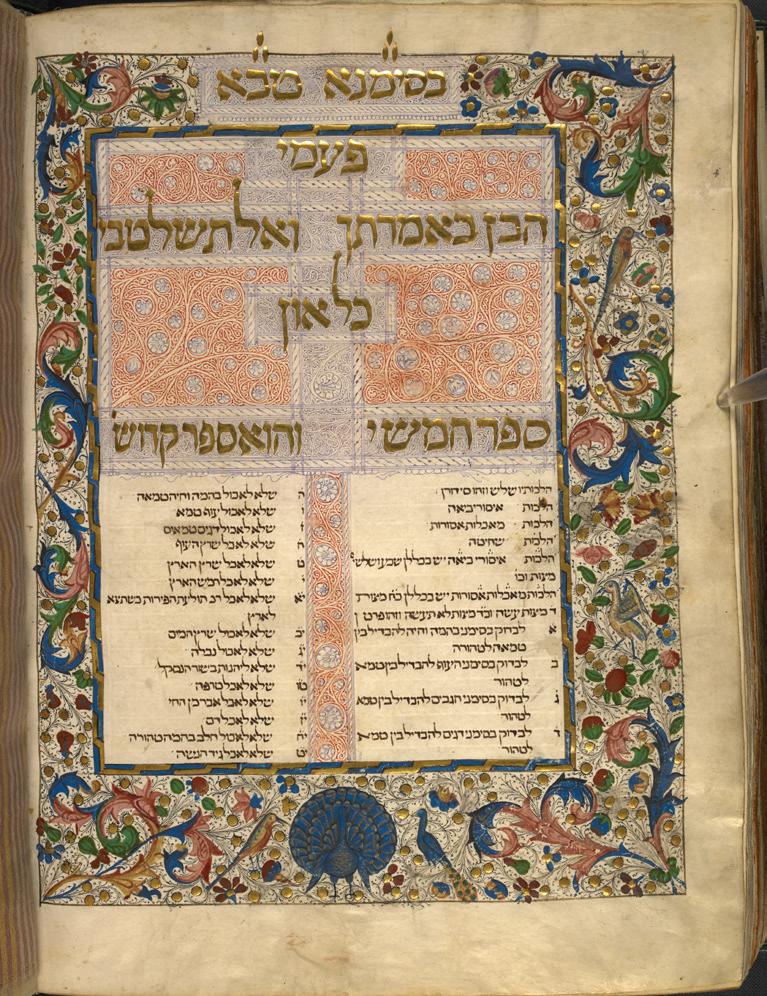 בסימנא טבא
פעמי
הכן באמרתך ואל תשלט בי
כל און
ספר חמישי והוא ספר קדוש
הלכותיו שליש וזהו סידורן
הלכות איסורי ביאה
הלכות מאכלות אסורות
הלכות שחיטה
הלכות איסורי ביאה יש בכללן שבע ושלשי
מצות וכו
הלכות מאכלות אסורות יש בכללן כח מצות
ד מצות עשה וכד מצות לא תעשה וזהו פרטן
א לבדוק בסימני בהמה וחיה להבדיל בין
טמאה לטהורה
ב לבדוק בסימני העוף להבדיל בין טמא
לטהור
ג לבדוק בסימני חגבים להבדיל בין טמא
לטהור
ד לבדוק בסימני דגים להבדיל בין טמא
לטהור
ה שלא לאכול בהמה וחיה טמאה
ו שלא לאכול עוף טמא
ז שלא לאכול דגים טמאים
ח שלא לאכל שרץ העוף
ט שלא לאכל שרץ הארץ
י שלא לאכל רמש הארץ
יא שלא לאכל תולעת הפירות כשתצא
לארץ
יב שלא לאכול שרץ המים
יג שלא לאכול נבלה
יד שלא ליהנות בשור הנסקל
טו שלא לאכל טרפה
יו שלא לאכל אבר מן החי
יז שלא לאכל דם
יח שלא לאכול חלב בהמה טהורה
יט שלא לאכל גיד הנשה